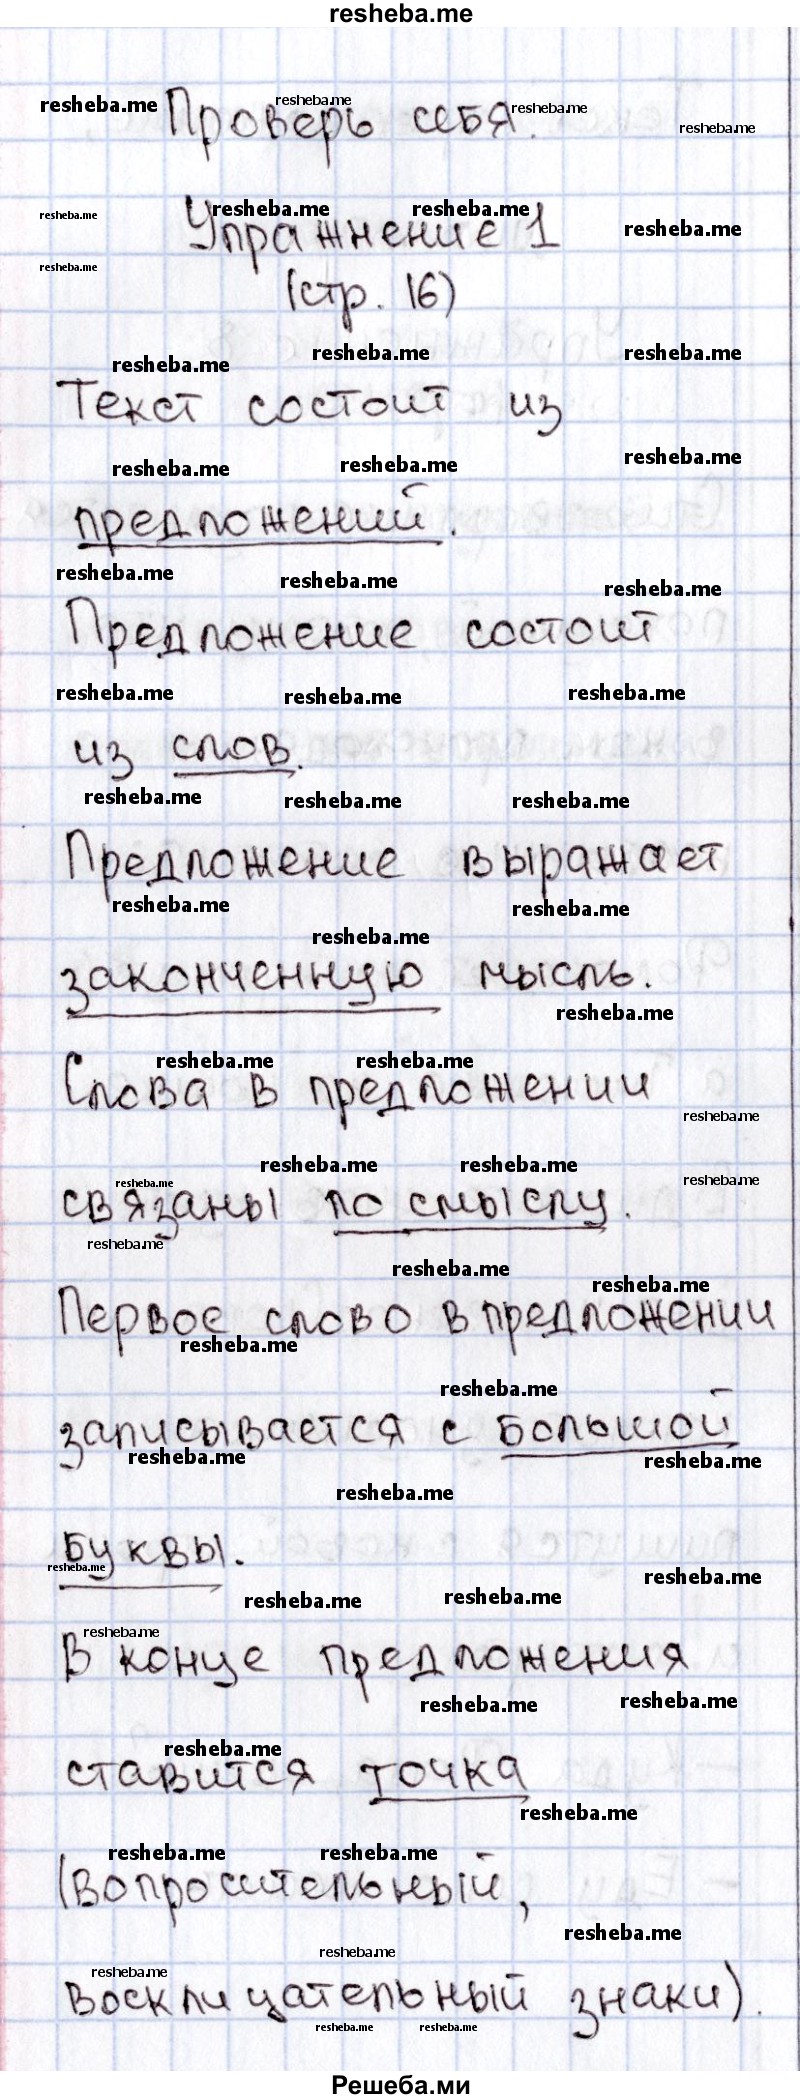 resheba.me
Проверь себя.
Упражнение 1
(стр. 16)
Текст состоит из
предложений.
Предложение состоит
из слов.
Предложение выражает
законченную мысль.
Слова в предложении
связаны по смыслу.
Первое слово в предложении
записывается с большой
буквы.
В конце предложения
ставится точка
(вопросительный,
восклицательный знаки).
Решеба.ми